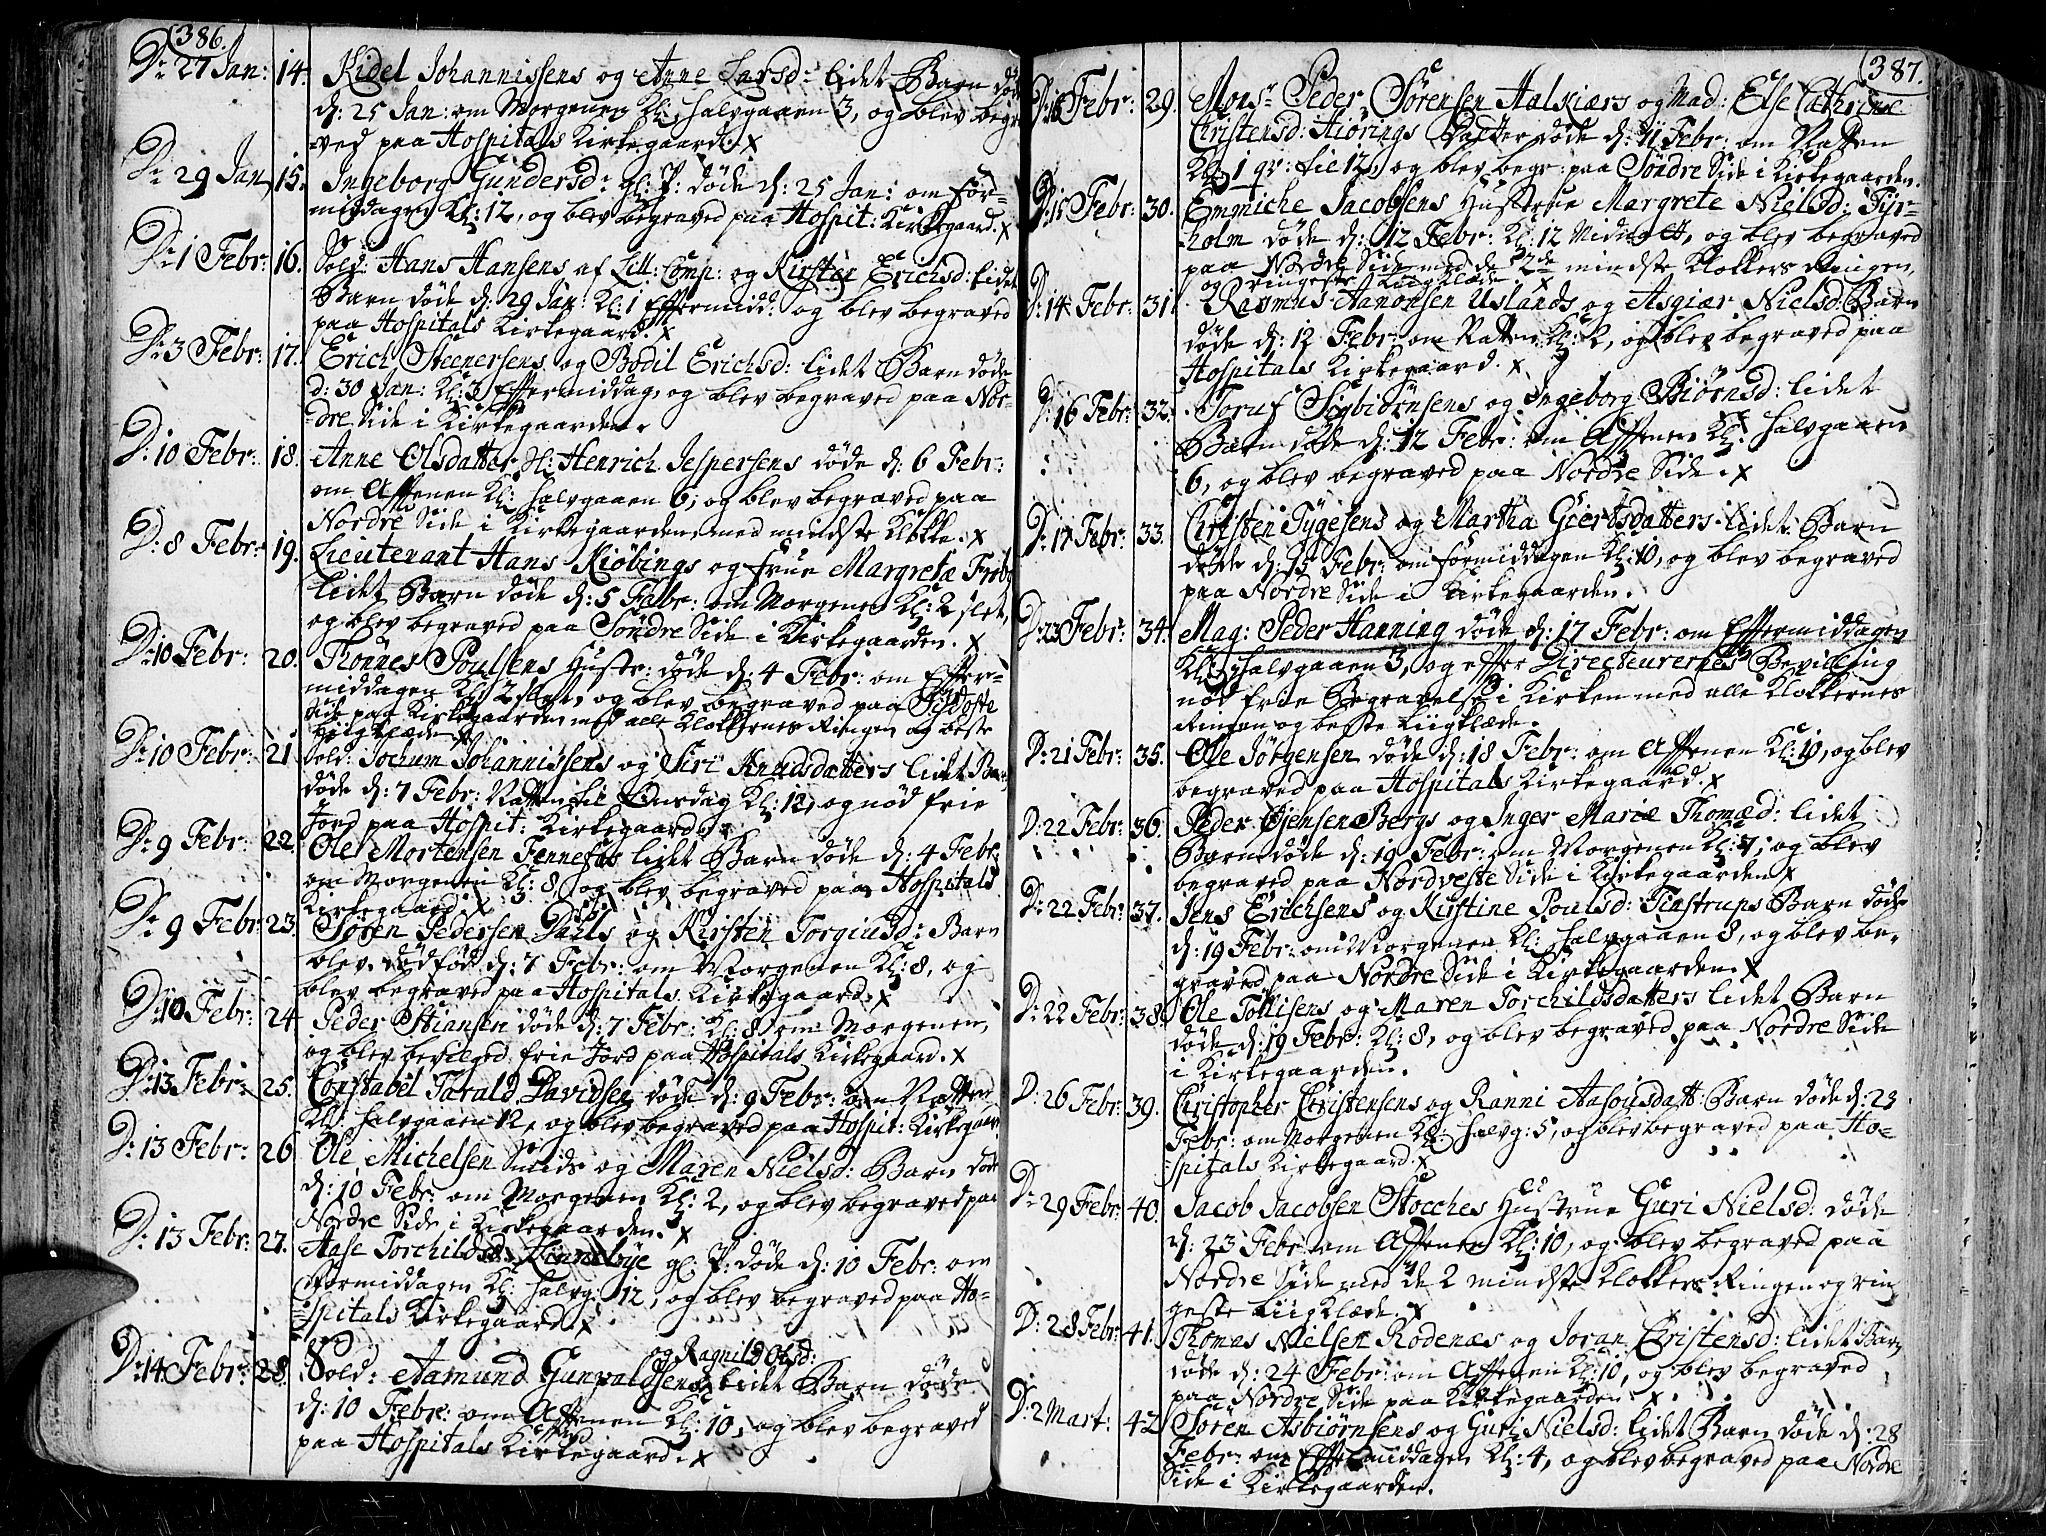 386.
D: 27 Jan: 14. Kidel Johannissens og Anne Larsd: lidet Barn død
d: 25 Jan: om Morgenen Kl: halvgaaen 3, og blev begra
=ved paa Hospitals Kirkegaard. x
D: 29 Jan 15. Ingeborg Gundersd: gl: P: døde d: 25 Jan: om for=
middagen Kl: 12, og blev begraved paa Hospit: Kirkegaard. x
D: 1 Febr: 16. Sold: Hans Hansens af Litt: Comp: og Kirsten Erichsd: lidet
Barn døde d: 29 Jan: Kl: 1 Eftermidd: og blev begraved
paa Hospitals Kirkegaard. x
D: 3 Febr: 17. Erich Steenersens og Bodil Erichsd: lidet Barn døde
d: 30 Jan: Kl: 3 Eftermiddag, og blev begraved paa Nor=
dre Side i Kirkegaarden.
D: 10 Febr: 18. Anne Olsdatter Henrich Jespersens døde d: 6 Febr:
om Aftenen Kl: halvgaaen 6, og blev begraved paa
Nordre Side i Kirkegaarden med mindste Klokke. x
D: 8 Febr: 19. Lieutenant Hans Kiöbings og frue Margreta
lidet Barn døde d: 5 Febr: om Morgenen Kl: 2 slet,
og blev begraved paa Søndre Side i Kirkegaarden. x
D: 10 Febr: 20. Thønnes Poulsens Hustr: døde d: 4 Febr: om Efter=
middagen Kl: 2 slet, og blev begraved paa Sydoste
Side paa Kirkegaarden med alle Klokkernes Ringen og beste
Liigklæde x
D: 10 Febr: 21. Sold: Jochum Johannissens og Siri Knudsdatters lidet Barn
døde d: 7 Febr: Natten til Onsdag Kl: 12, og nød frie
Jord paa Hospit: Kirkegaard. x
D: 9 Febr: 22. Ole Mortensen Fennefos lidet Barn døde d: 4 Febr:
om Morgenen Kl: 8, og blev begraved paa Hospitals
Kirkegaard. x
D: 9 Febr 23. Søren Pedersen Dahls og Kirsten Torgiusd: Barn
blev dødfød d: 7 Febr: om Morgenen Kl: 8, og
blev begraved paa Hospitals Kirkegaard. x
D: 10 Febr: 24. Peder Stiansen døde d: 7 Febr: Kl: 8 om Morgenen,
og blev bevilged frie Jord paa Hospitals Kirkegaard. x
D: 13 Febr: 25. Constabel Tarald Davidsen døde d: 9 Febr: om Natten
Kl: halvgaaen 12, og blev begraved paa Hospit: Kirkegaar
D: 13 Febr: 26. Ole Michelsen Smeds og Maren Nielsd: Barn døde
d: 10 Febr: om Morgenen Kl: 2, og blev begraved paa
Nordre Side i Kirkegaarden. x
D: 13 Febr: 27. Aase Torchildsd: gl: P: døde d: 10 Febr: om
Formiddagen Kl: halvg: 12, og blev begraved paa Ho=
=spitals Kirkegaard. x
og Ragnild Olsd:
D: 14 Febr: 28. Sold: Aamund Gunvaldsens lidet Barn døde
d: 10 Febr: om Aftenen Kl: 10, og blev begraved
paa Hospitals Kirkegaard. x
387.
D: 18 Febr: 29. Mons: Peder Sørensen Aalkiærs og Mad: Else Cathrine
Christensd: Hiørings Datter døde d: 11 Febr: om Natten
Kl: 1 qv: til 12, og blev begr: paa Søndre Side i Kirkegaarden.
D: 15 Febr: 30. Emmiche Jacobsens Hustrue Margrete Nielsd: Fyr=
=holm døde d: 12 Febr: Kl: 12 Midnat, og blev begraved
paa Nordre Side med de 2de mindste Klokkers Ringen,
og ringeste Liigklæde x
D: 14 Febr: 31. Rasmus Aanonsen Uslands og Asgiær Nielsd: Barn
døde d: 12 Febr: om Natten Kl: 2, og blev begraved paa
Hospitals Kirkegaard. x
D: 16 Febr: 32. Toruf Sigbiörnsens og Ingeborg Biörnsd: lidet
Barn døde d: 12 Febr: om Aftenen Kl: halvgaaen
6, og blev begraved paa Nordre Side. x
D: 17 Febr: 33. Christen Tygesens og Martha Giertsdatters lidet Barn
døde d: 15 Febr: om formiddagen Kl: 10, og blev begraved
paa Nordre Side i Kirkegaarden.
D: 23 Febr: 34. Mag: Peder Hanning døde d: 17 Febr: om Eftermiddagen
Kl: halvgaaen 3, og efter Directeurernes Bevilling
nød frie Begravelse i Kirken med alle Klokkernes
Ringen og beste Liigklæde.
D: 21 Febr: 35. Ole Jørgensen døde d: 18 Febr: om Aftenen Kl: 10, og blev
begraved paa Hospitals Kirkegaard. x
D: 22 Febr: 36. Peder Ojensen Bergs og Inger Marie Thomæd: lidet
Barn døde d: 19 Febr: om Morgenen Kl: 7, og blev
begraved paa Nordveste Side i Kirkegaarden x
D: 22 Febr: 37. Jens Erichsens og Kirstine Poulsd: Finstrups Barn døde
d: 19 Febr: om Morgenen Kl: halvgaaen 8, og blev be=
graved paa Nordre Side i Kirkegaarden. x
D: 22 Febr: 38. Ole Tollisens og Maren Torchildsdatters lidet Barn
døde d: 19 Febr: Kl: 8, og blev begraved paa Nordre Side
i Kirkegaarden.
D: 26 Febr: 39. Christopher Christensens og Ranni Aasousdatt: Barn døde d: 23
Febr: om Morgenen Kl: halvg: 5, og blev begraved paa Ho=
=spitals Kirkegaard. x
D: 29 Febr: 40. Jacob Jacobsen Stocches Hustrue Guri Nielsd: døde
d: 23 Febr: om Aftenen Kl: 10, og blev begraved paa
Nordre Side med de 2 mindste Klokkers Ringen og rin
geste Liigklæde. x
D: 28 Febr: 41. Thomas Nielsen Rodenæs og Joran Christensd: lidet Barn
døde d: 24 Febr: om Aftenen Kl: 10, og blev begraved
paa Nordre Side paa Kirkegaarden x.
D: 2 Mart: 42 Søren Asbiørnsens og Guri Nielsd: lidet Barn døde d: 28
Febr: om Eftermiddagen Kl: 4, og blev begraved paa Nordre
Side i Kirkegaarden.